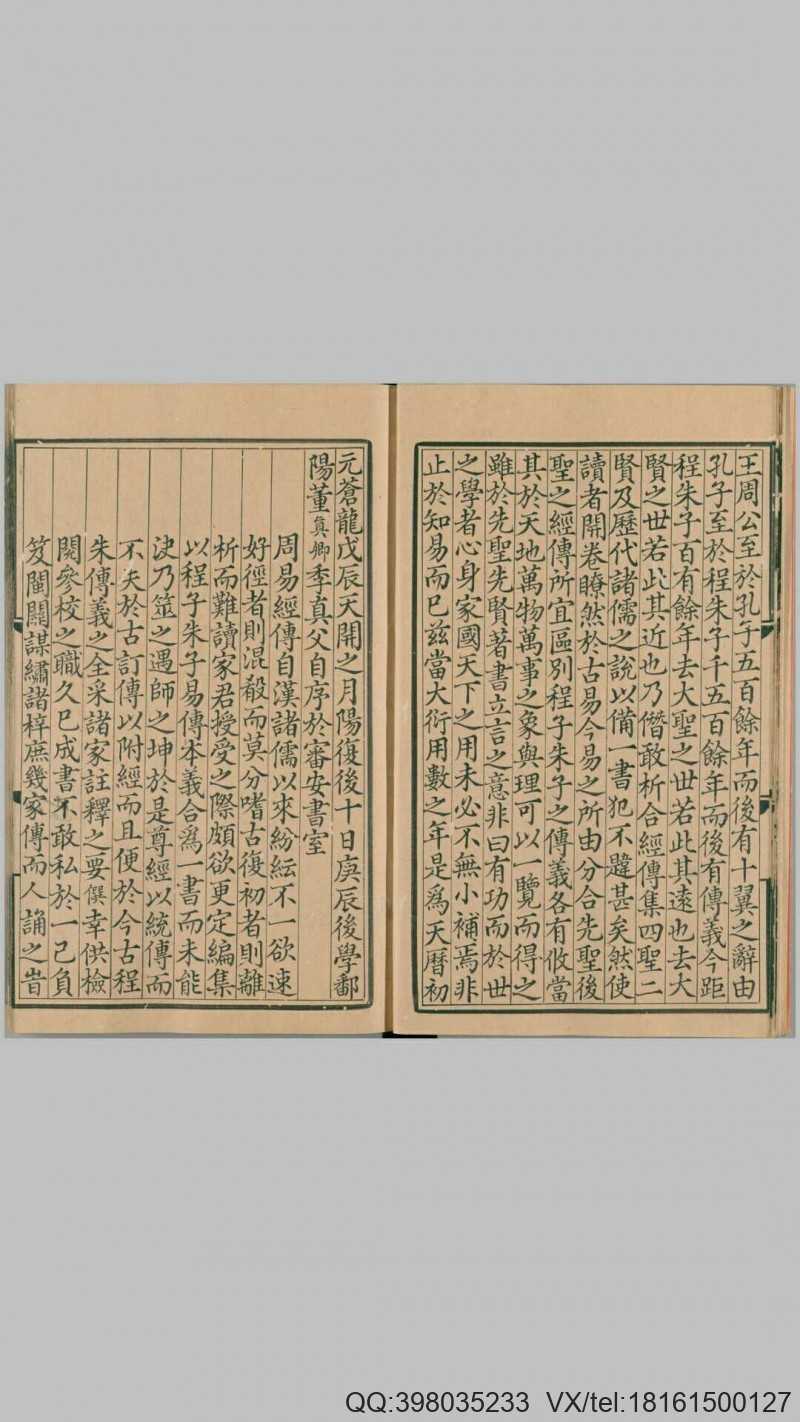 王周公至於孔子五百餘年而後有十翼之辭由
孔子至於程朱子千五百餘年而後有傳義今距
程朱子百有餘年去大聖之世若此其遠也去大
賢之世若此其近也乃僭敢析合經傳集四聖二
賢及歷代諸儒之說以備一書犯不韙甚矣然使
讀者開卷瞭然於古易今易之所由分合先聖後
聖之經傳所宜區別程子朱子之傳義各有攸當
其於天地萬物萬事之象與理可以一覽而得之
雖於先聖先賢著書立言之意非曰有功而於世
之學者心身家國天下之用未必不無小補焉非
止於知易而已茲當大衍用數之年是爲天曆初
元蒼龍戊辰天開之月陽復後十日庚辰後學鄱
陽董真卿季真父自序於審安書室
周易經傳自漢諸儒以來紛紜不一欲速
好徑者則混殽而莫分嗜古復初者則離
析而難讀家君授受之際頗欲更定編集
以程子朱子易傳本義合爲一書而未能
決乃筮之遇師之坤於是尊經以統傳而
不失於古訂傳以附經而且便於今古程
朱傳義之全采諸家註釋之要僎幸供檢
閱參校之職久已成書不敢私於一己負
笈閩關謀繡諸梓庶幾家傳而人誦之旹
QQ:398035233 VX/tel:18161500127